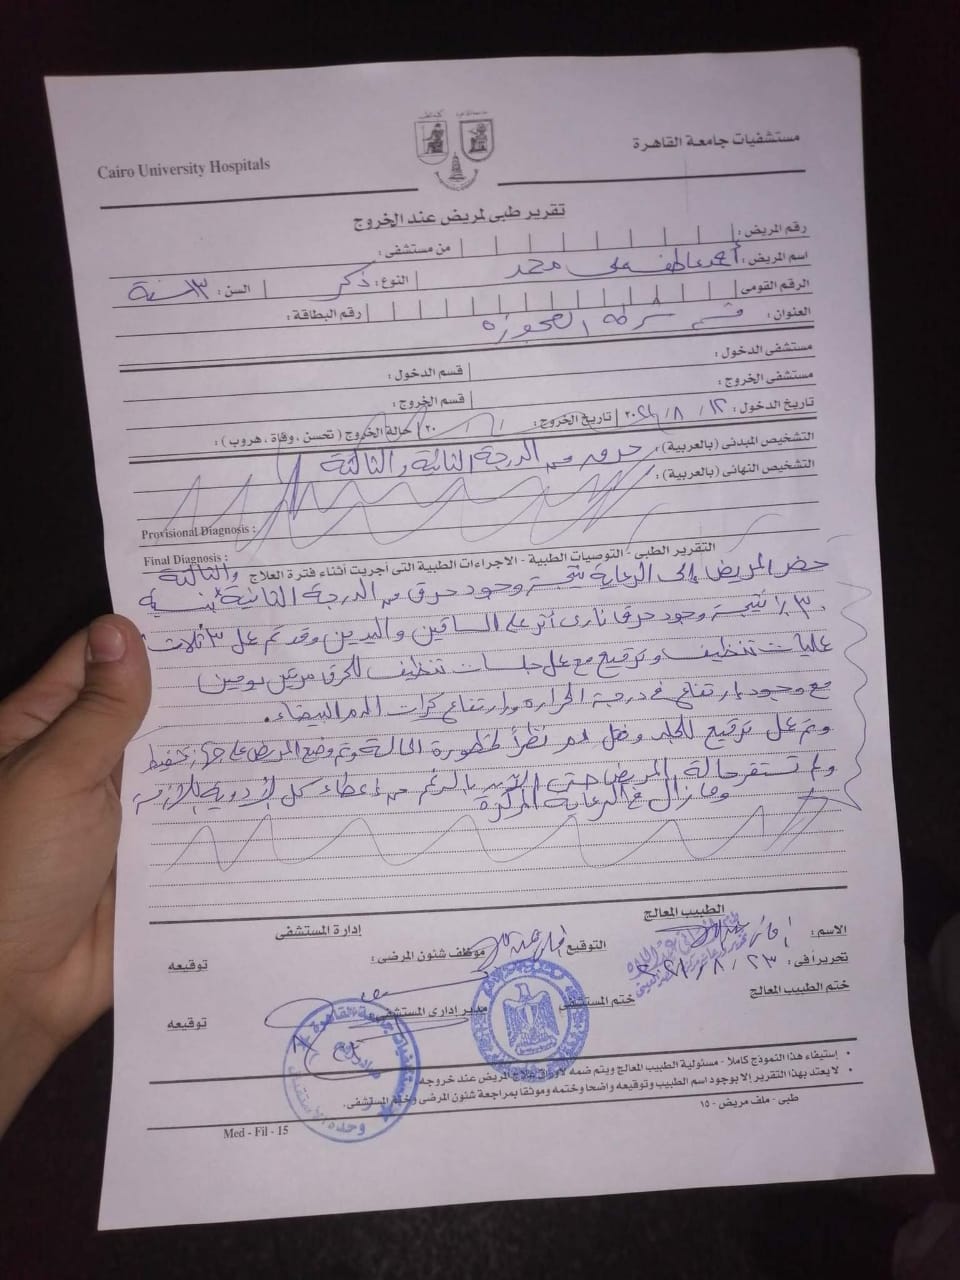 مستشفيات جامعة القاهرة
Cairo University Hospitals
تقرير طبى لمريض عند الخروج
رقم المريض : من مستشفى :
اسم المريض : أحمد عاطف على محمد النوع : ذكر السن : ١٣ سنة
الرقم القومى رقم البطاقة :
العنوان : قسم شرطة العجوزه
مستشفى الدخول : قسم الدخول :
مستشفى الخروج : قسم الخروج :
تاريخ الدخول : ١٢ / ٨ / ٢٠٢١ تاريخ الخروج : / / ٢٠ حالة الخروج ( تحسن ، وفاة ، هروب ) :
التشخيص المبدئى (بالعربية) : حروق من الدرجة الثانية والثالثة
التشخيص النهائى (بالعربية) :
Provisional Diagnosis :
Final Diagnosis :
التقرير الطبى - التوصيات الطبية - الاجراءات الطبية التى أجريت أثناء فترة العلاج
حضر المريض إلى الرعاية نتيجة وجود حروق من الدرجة الثانية والثالثة بنسبة
٣٠٪ نتيجة وجود حرق نارى أثر على الساقين واليدين وقد تم عمل ٣ ثلاث
عمليات تنظيف وترقيع مع عمل جلسات تنظيف للحرق مرتين يومين
مع وجود إرتفاع فى درجة الحراره وارتفاع كرات الدم البيضاء .
وتم عمل ترقيع للجلد وفشل نظراً لخطورة الحالة وتم وضع المريض على جهاز
ولم تستقر حالة المريض حتى الآن بالرغم من إعطاء كل الأدوية اللازمة
ومازال فى الرعاية المركزة
الطبيب المعالج إدارة المستشفى
الاسم : التوقيع موظف شئون المرضى : توقيعه
تحريرا فى : ٢٣ / ٨ / ٢٠٢١
ختم الطبيب المعالج ختم المستشفى مدير إدارى المستشفى توقيعه
• إستيفاء هذا النموذج كاملاً - مسئولية الطبيب المعالج ويتم ضمه لأوراق علاج المريض عند خروجه
• لا يعتد بهذا التقرير إلا بوجود اسم الطبيب وتوقيعه واضحا وختمه وموثقا بمراجعة شئون المرضى وختم المستشفى.
طبى - ملف مريض - ١٥
Med - Fil - 15